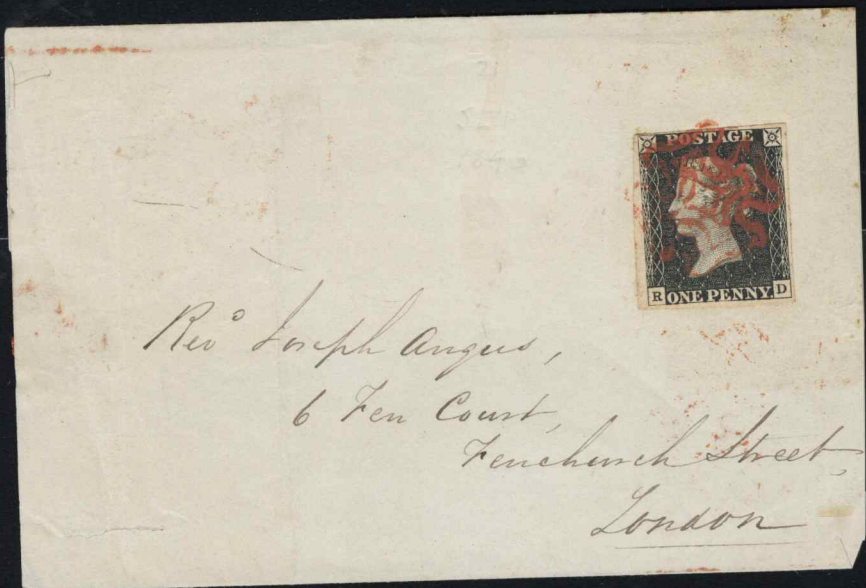 POSTAGE
R ONE PENNY. D
Revd Joseph Angus,
6 Fen Court,
Fenchurch Street,
London